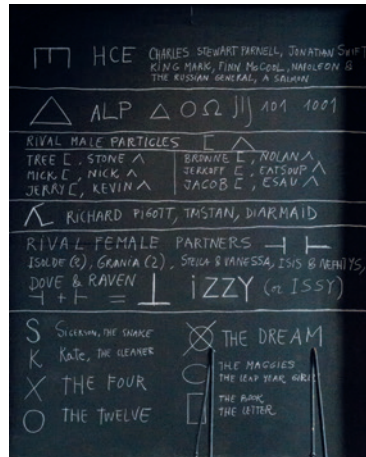 E HCE CHARLES STEWART PARNELL, JONATHAN SWIFT
KING MARK, FINN McCOOL, NAPOLEON &
THE RUSSIAN GENERAL, A SALMON
△ ALP △ O Ω 101 1001
RIVAL MALE PARTICLES [ Λ
TREE [, STONE Λ
MICK [, NICK Λ
JERRY [, KEVIN Λ
BROWNE [, NOLAN Λ
JERKOFF [, EATSOUP Λ
JACOB [, ESAU Λ
RICHARD PIGOTT, TRISTAN, DIARMAID
RIVAL FEMALE PARTNERS ⊣ ⊢
ISOLDE (2), GRANIA (2), STELLA & VANESSA, ISIS & NEPHTYS,
DOVE & RAVEN
⊣ + ⊢ = ⊥ iZZY (or ISSY)
S SIGERSON, THE SNAKE
K Kate, THE CLEANER
X THE FOUR
O THE TWELVE
THE DREAM
THE MAGGIES
THE LEAP YEAR GIRLS
THE BOOK
THE LETTER